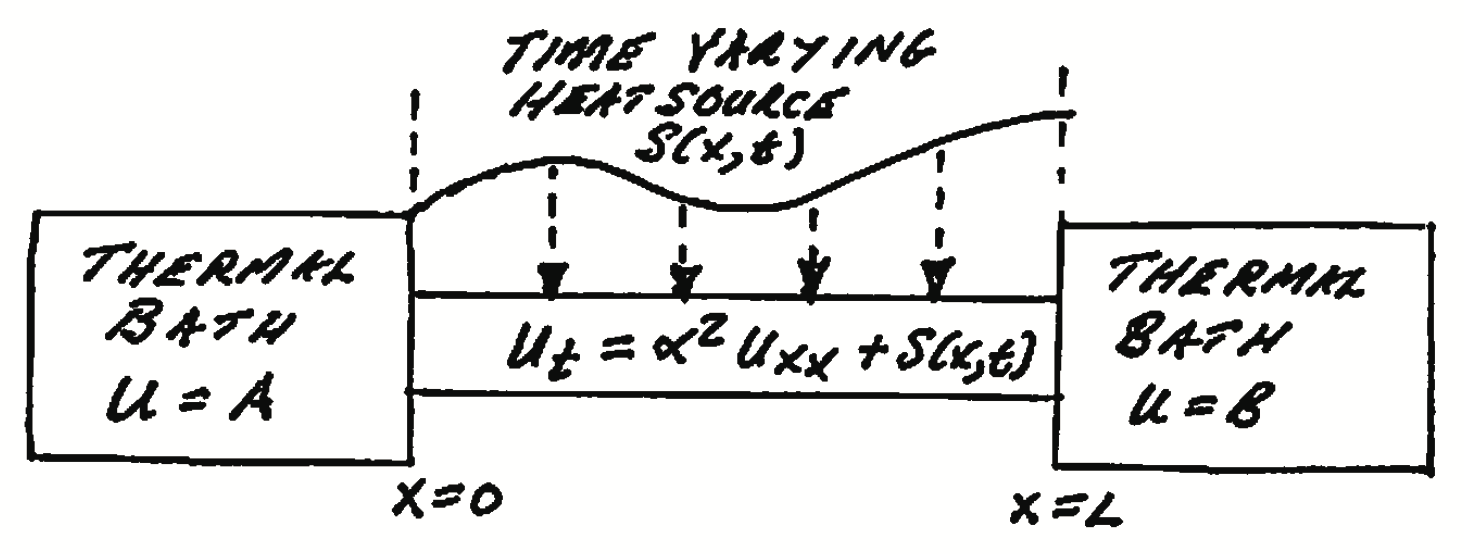 TIME VARYING
HEAT SOURCE
S(x,t)
THERMAL
BATH
U = A
U_t = α² U_xx + S(x,t)
THERMAL
BATH
U = B
X=0
X=L